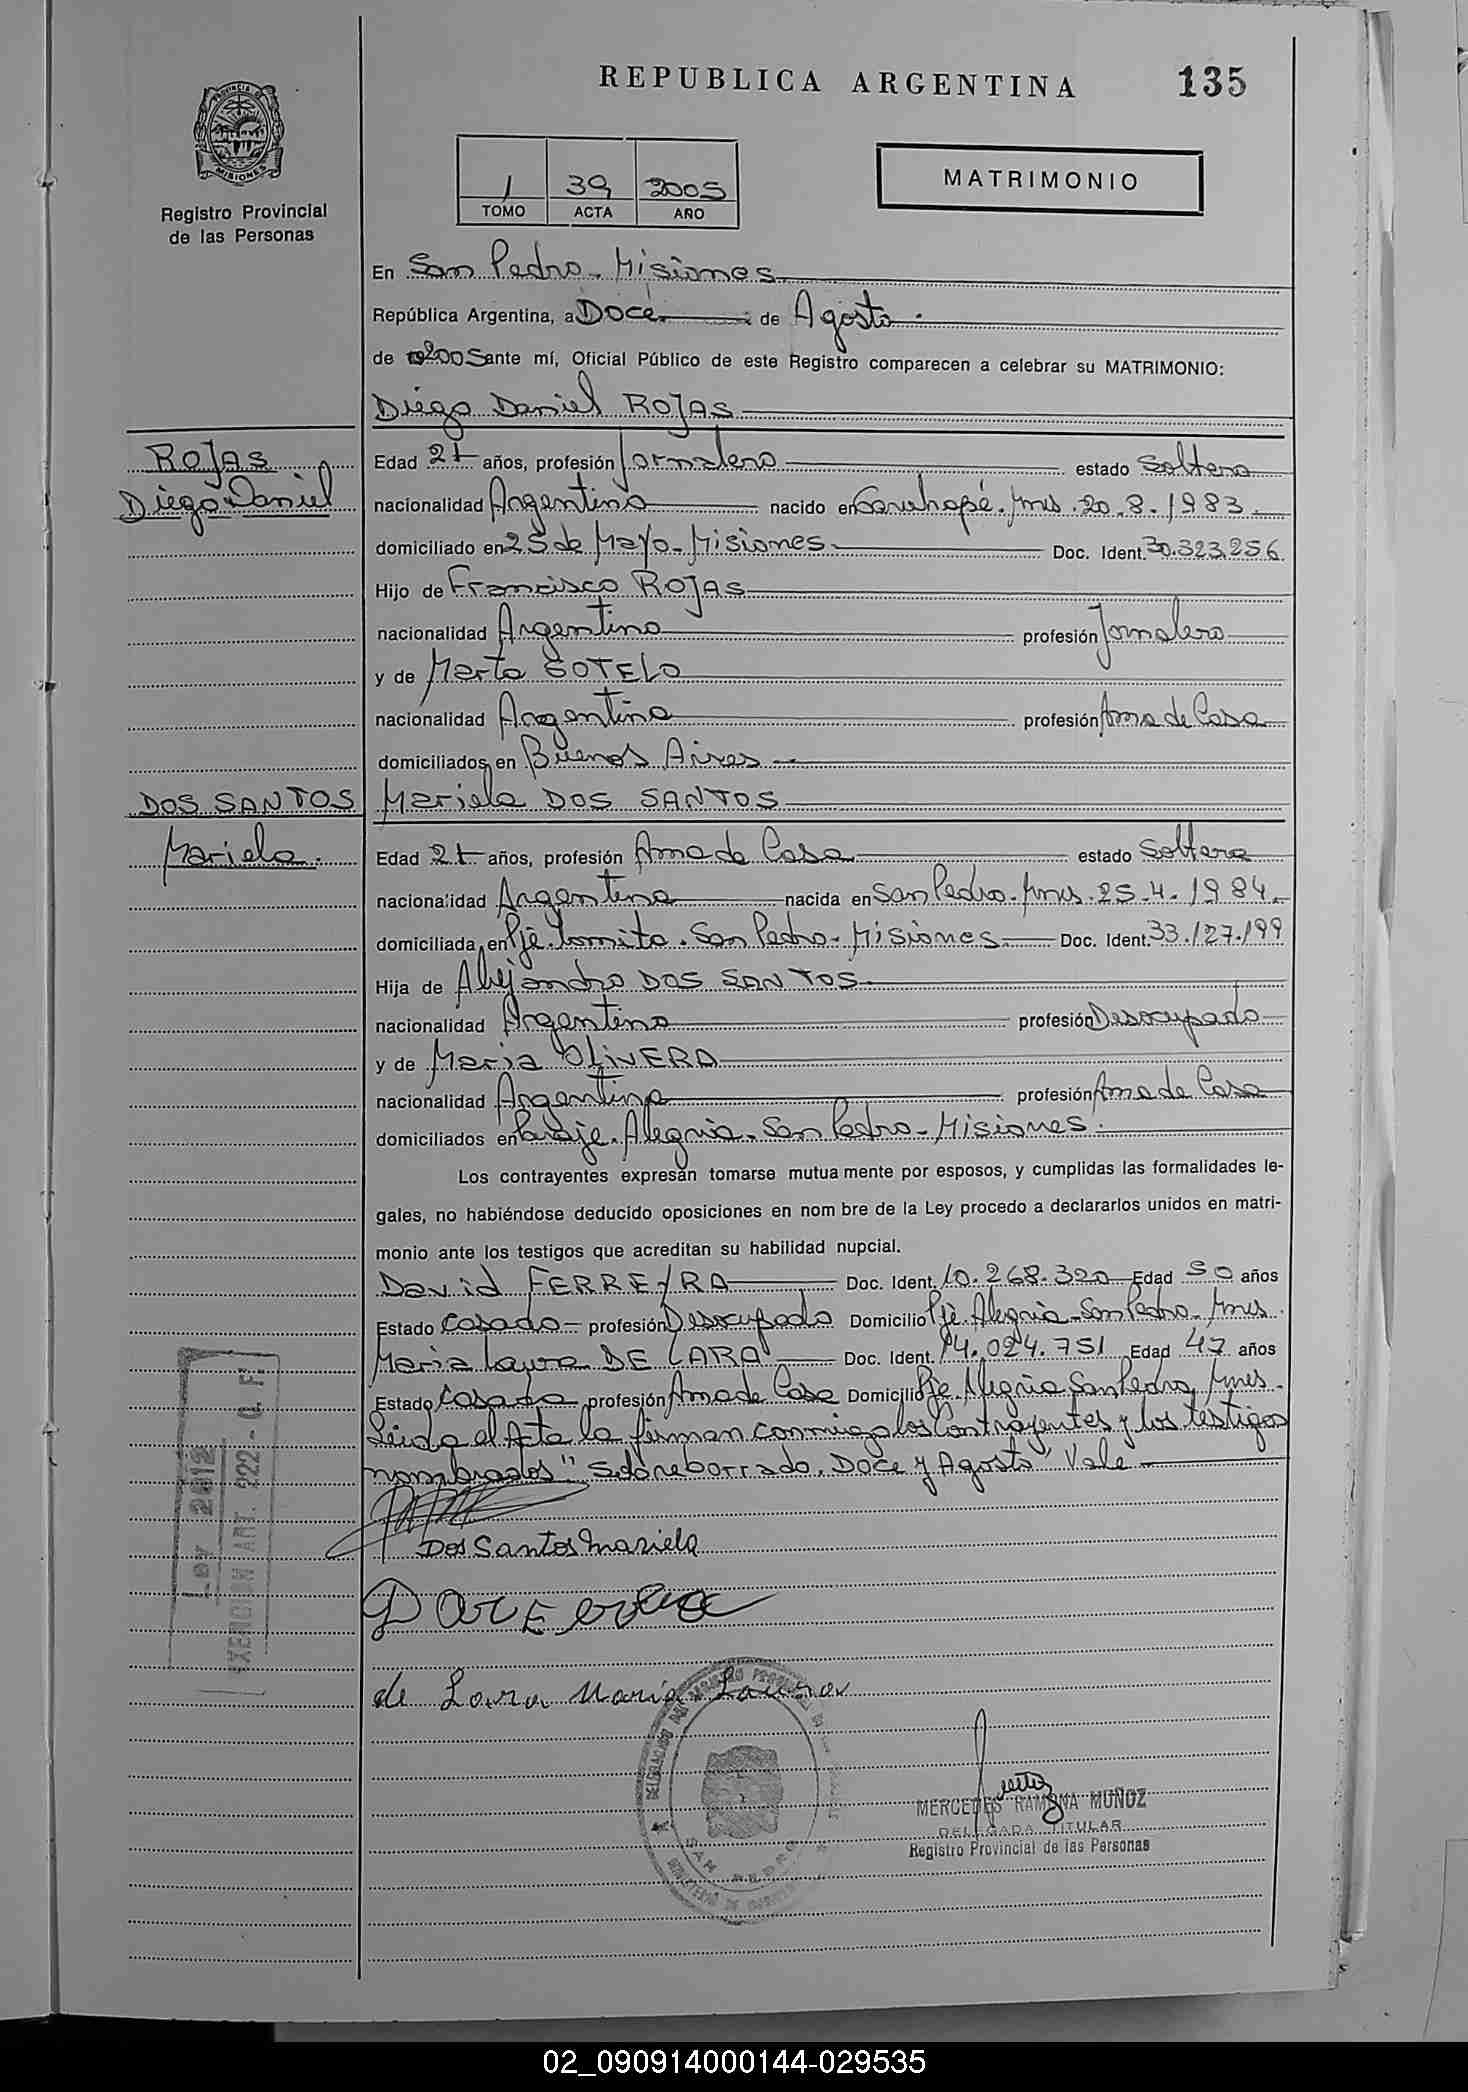 REPUBLICA ARGENTINA
135
PROVINCIA DE
MISIONES
Registro Provincial
de las Personas
1 39 2005
TOMO ACTA AÑO
MATRIMONIO
En San Pedro - Misiones
República Argentina, a Doce de Agosto
de 2005 ante mí, Oficial Público de este Registro comparecen a celebrar su MATRIMONIO:
Diego Daniel ROJAS
ROJAS
Diego Daniel
Edad 21 años, profesión Jornalero estado Soltero
nacionalidad Argentino nacido en Garuhapé. Mnes. 20.8.1983
domiciliado en 25 de Mayo - Misiones Doc. Ident. 30.323.256
Hijo de Francisco ROJAS
nacionalidad Argentino profesión Jornalero
y de Marta SOTELO
nacionalidad Argentina profesión Ama de Casa
domiciliados en Buenos Aires
DOS SANTOS
Mariela.
Mariela DOS SANTOS
Edad 21 años, profesión Ama de Casa estado Soltera
nacionalidad Argentina nacida en San Pedro. Mnes. 25.4.1984.
domiciliada en Pje. Tomito. San Pedro - Misiones Doc. Ident. 33.127.199
Hija de Alejandro DOS SANTOS
nacionalidad Argentino profesión Desocupado
y de Maria OLIVERA
nacionalidad Argentina profesión Ama de Casa
domiciliados en Paraje Alegria. San Pedro - Misiones.
Los contrayentes expresan tomarse mutua mente por esposos, y cumplidas las formalidades le-
gales, no habiéndose deducido oposiciones en nom bre de la Ley procedo a declararlos unidos en matri-
monio ante los testigos que acreditan su habilidad nupcial.
David FERREYRA Doc. Ident. 10.268.320 Edad 50 años
Estado Casado profesión Desocupado Domicilio Pje. Alegria - San Pedro - Mnes.
Maria Laura DE LARA Doc. Ident. 14.024.751 Edad 47 años
Estado Casada profesión Ama de Casa Domicilio Pje. Alegria San Pedro Mnes.
Leida el Acta la firman conmigo los Contrayentes y los testigos
nombrados "Sobreborrado. Doce y Agosto" Vale
Dos Santos Mariela
de Lara Maria Laura
Ley 2612
EXENCION ART. 222 - C. F.
SAN PEDRO
MERCEDES RAMONA MUÑOZ
DELEGADA TITULAR
Registro Provincial de las Personas
02_090914000144-029535